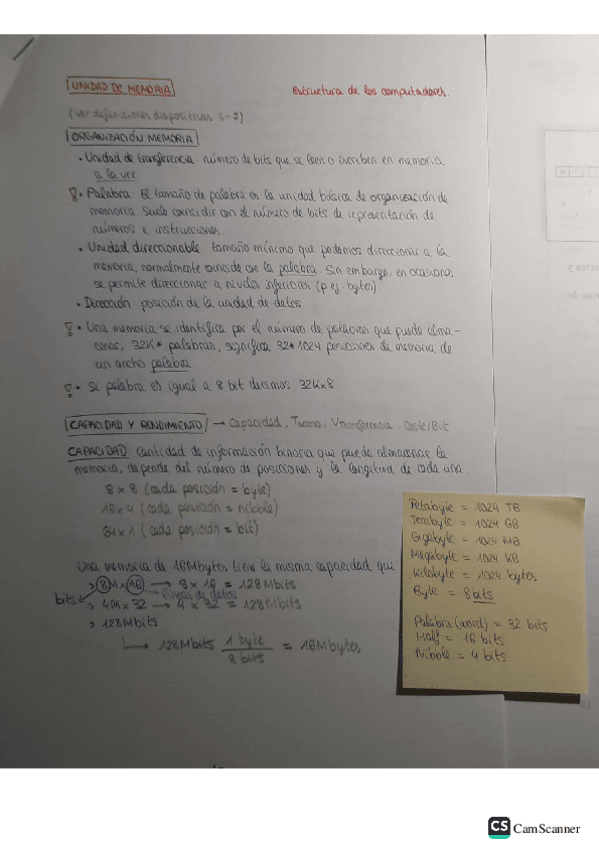 UNIDAD DE MEMORIA
Estructura de los computadores.
(ver definiciones diapositivas 5-7)
ORGANIZACIÓN MEMORIA
• Unidad de transferencia: número de bits que se leen o escriben en memoria
a la vez
• Palabra: El tamaño de palabra es la unidad básica de organización de
memoria. Suele coincidir con el número de bits de representación de
números e instrucciones.
• Unidad direccionable: tamaño mínimo que podemos direccionar a la
memoria, normalmente coincide con la palabra. Sin embargo, en ocasiones
se permite direccionar a niveles inferiores (p.ej. bytes)
• Dirección: posición de la unidad de datos
• Una memoria se identifica por el número de palabras que puede alma-
cenar, 32K* palabras, significa 32*1024 posiciones de memoria de
un ancho palabra
• Si palabra es igual a 8 bit decimos 32K×8.
CAPACIDAD Y RENDIMIENTO → Capacidad, Tacceso, Vtransferencia, Coste/Bit
CAPACIDAD: Cantidad de información binaria que puede almacenar la
memoria, depende del número de posiciones y la longitud de cada una.
8 × 8 (cada posición = byte)
16 × 4 (cada posición = nibble)
64 × 1 (cada posición = bit)
Una memoria de 16Mbytes tiene la misma capacidad que
> 8M × 16 → 8 × 16 = 128Mbits
bits
líneas de datos
> 4M × 32 → 4 × 32 = 128Mbits
> 128Mbits
↳ 128Mbits 1 byte / 8 bits = 16Mbytes
Petabyte = 1024 TB
Terabyte = 1024 GB
Gigabyte = 1024 MB
Megabyte = 1024 KB
Kilobyte = 1024 bytes
Byte = 8 bits
Palabra (word) = 32 bits
Half = 16 bits
Nibble = 4 bits
CS CamScanner